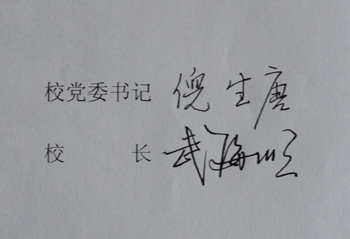 校党委书记 倪生唐
校长 武海顺